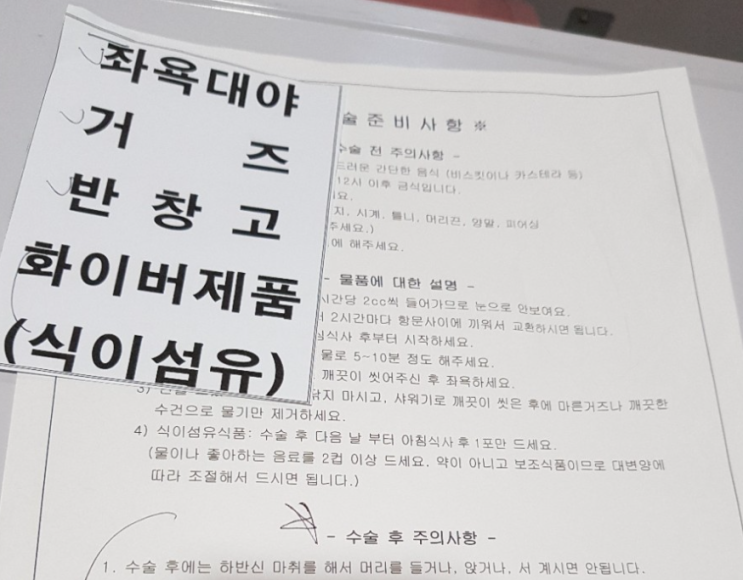 좌욕대야
거 즈
반 창 고
화이버제품
(식이섬유)
술 준 비 사 항 ※
수술 전 주의사항 -
드러운 간단한 음식 (비스킷이나 카스테라 등)
12시 이후 금식입니다.
요.
지, 시계, 틀니, 머리끈, 양말, 피어싱
주세요.)
에 해주세요.
- 물품에 대한 설명 -
시간당 2cc씩 들어가므로 눈으로 안보여요.
2시간마다 항문사이에 끼워서 교환하시면 됩니다.
침식사 후부터 시작하세요.
물로 5~10분 정도 해주세요.
깨끗이 씻어주신 후 좌욕하세요.
3) 닦지 마시고, 샤워기로 깨끗이 씻은 후에 마른거즈나 깨끗한
수건으로 물기만 제거하세요.
4) 식이섬유식품: 수술 후 다음 날 부터 아침식사 후 1포만 드세요.
(물이나 좋아하는 음료를 2컵 이상 드세요. 약이 아니고 보조식품이므로 대변양에
따라 조절해서 드시면 됩니다.)
- 수술 후 주의사항 -
1. 수술 후에는 하반신 마취를 해서 머리를 들거나, 앉거나, 서 계시면 안됩니다.